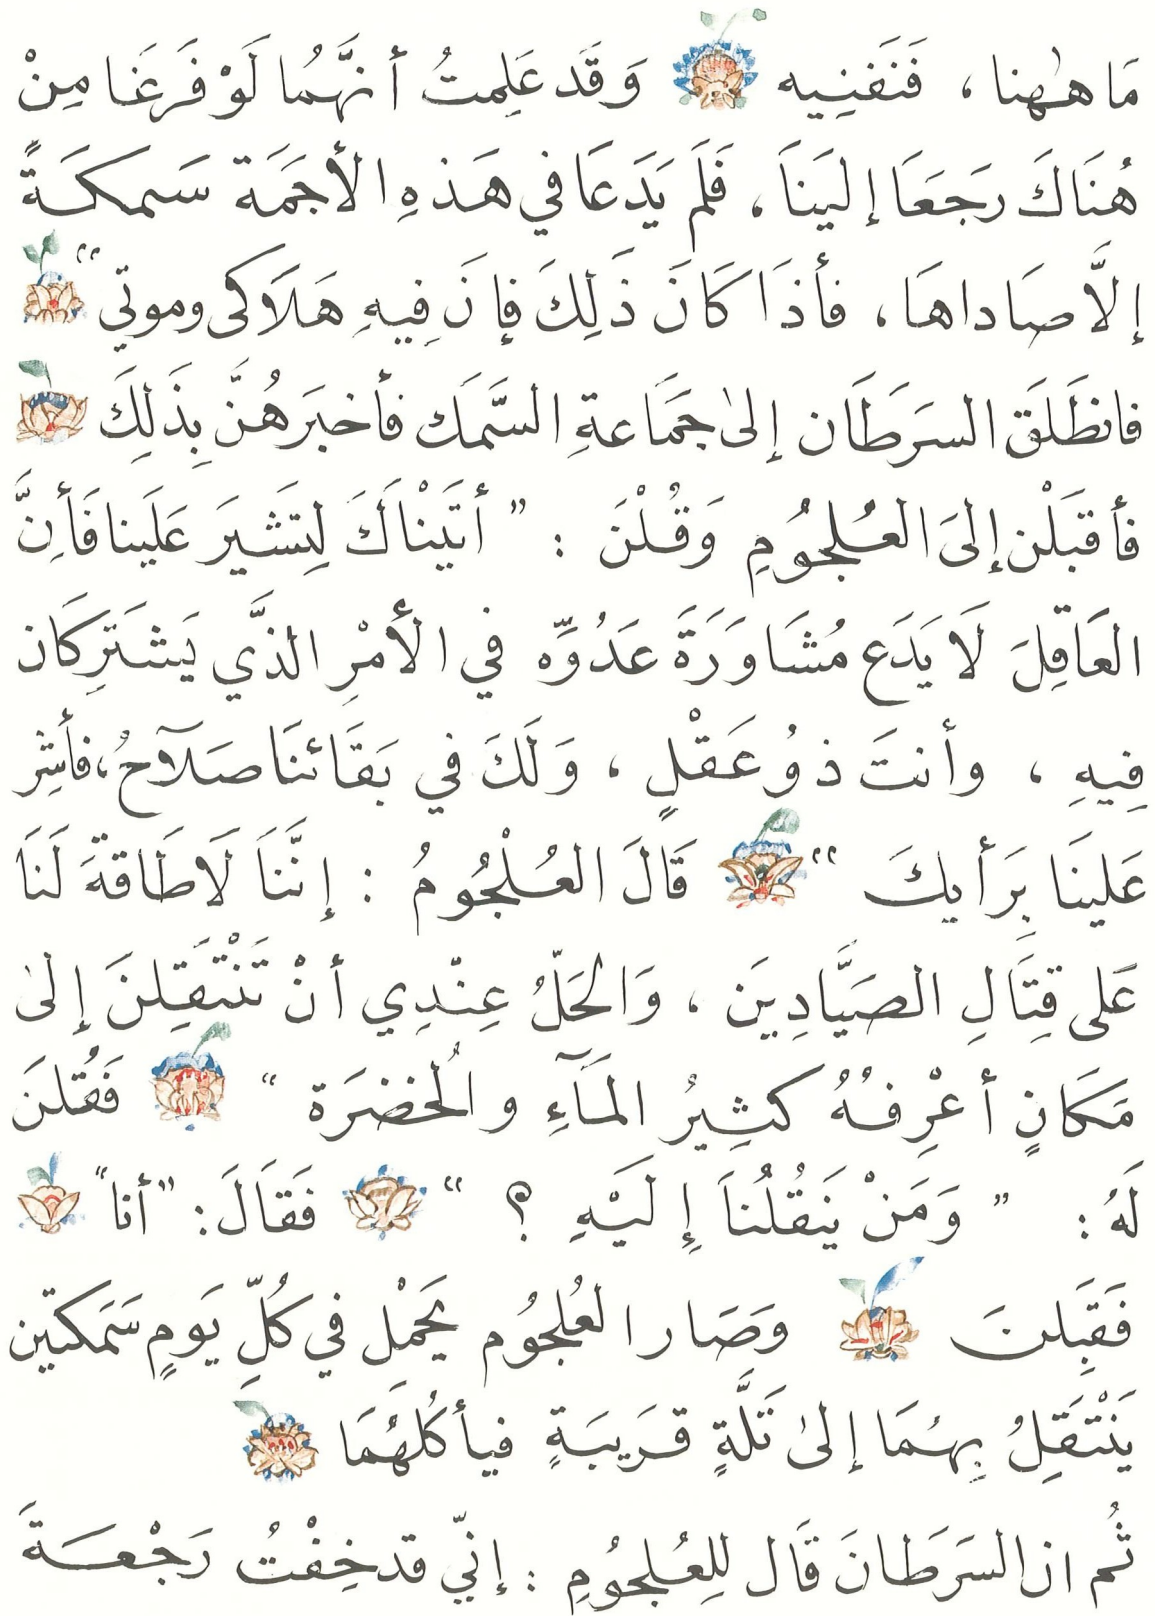 مَا هٰهنا ، فَنَفنِيه وَقَد عَلِمتُ أنهَّمُا لَوْ فَرَغَا مِنْ
هُنَاكَ رَجَعَا إليَناَ ، فَلَم يَدَعَا في هَذهِ الأجَمَة سَمكَةً
إلاَّ صَاداهَا ، فأذَا كَانَ ذَلِكَ فإنَ فِيهِ هَلاَكى وموتي “
فانطَلَق السرَطَان إلىٰ جَمَاعةِ السَّمَك فأخبَرهُنَّ بِذَلِكَ
فأقبَلْن إلىَ العُلجُومِ وَقُلْنَ : ” أتَيْناَكَ لِتَشيرَ عَلَينا فَأنَّ
العَاقِلَ لاَ يَدَع مُشَاوَرَةَ عَدُوِّه في الأمْرِ الذَّي يَشتَرِكَان
فِيهِ ، وأنتَ ذوُ عَقْلٍ ، وَلَكَ في بَقَائنَا صَلآحُ ، فأشِر
عَلينَا بِرَأيكَ “ قَالَ العُلْجُومُ : إنَّنَا لاَطَاقةَ لَنَا
عَلى قِتَالِ الصَيَّادِيَن ، وَالحَلّ عِنْدِي أنْ تَنْتَقِلنَ إلىٰ
مَكَانٍ أعْرِفُهُ كثِيرُ المَآءِ والخُضرَة “ فَقُلنَ
لَهُ : ” وَمَنْ يَنقُلُنَا إِلَيْهِ ؟ “ فَقاَلَ : ”أنا“
فَقَبِلنَ وَصَار العُلجُوم يَحمْل في كُلِّ يَومٍ سَمَكتَين
يَنْتَقِلُ بِهُمَا إلىٰ تَلَّةٍ قَريبَةٍ فيأكُلهُمَا
ثُم ان السَرَطَانَ قَال لِلِعُلجُومِ : إنيّ قد خِفْتُ رَجْعَةَ